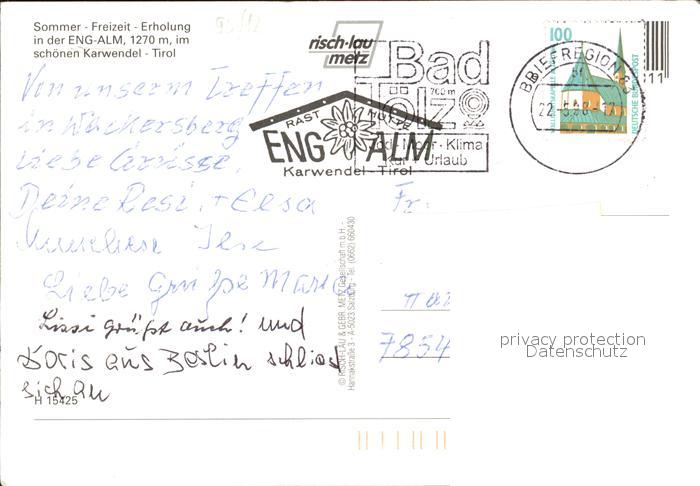 Sommer - Freizeit - Erholung
in der ENG-ALM, 1270 m, im
schönen Karwendel - Tirol
risch-lau
metz
Bad
700 m
Tölz
Moor · Klima
Kur + Urlaub
RAST HÜTTE
ENG ALM
Karwendel - Tirol
BRIEFREGION 8
100
DEUTSCHE BUNDESPOST
Von unserm Treffen
in Wackersberg
liebe Grüsse.
Deine Resi. + Elsa
Liebe Grüße Maria
Lissi grüßt auch! und
Doris aus Berlin schließt
sich an
H 15425
Fr.
7854
© RISCH-LAU & GEBR. METZ Gesellschaft m.b.H. -
A-5023 Salzburg - Tel. (0662) 660430
privacy protection
Datenschutz